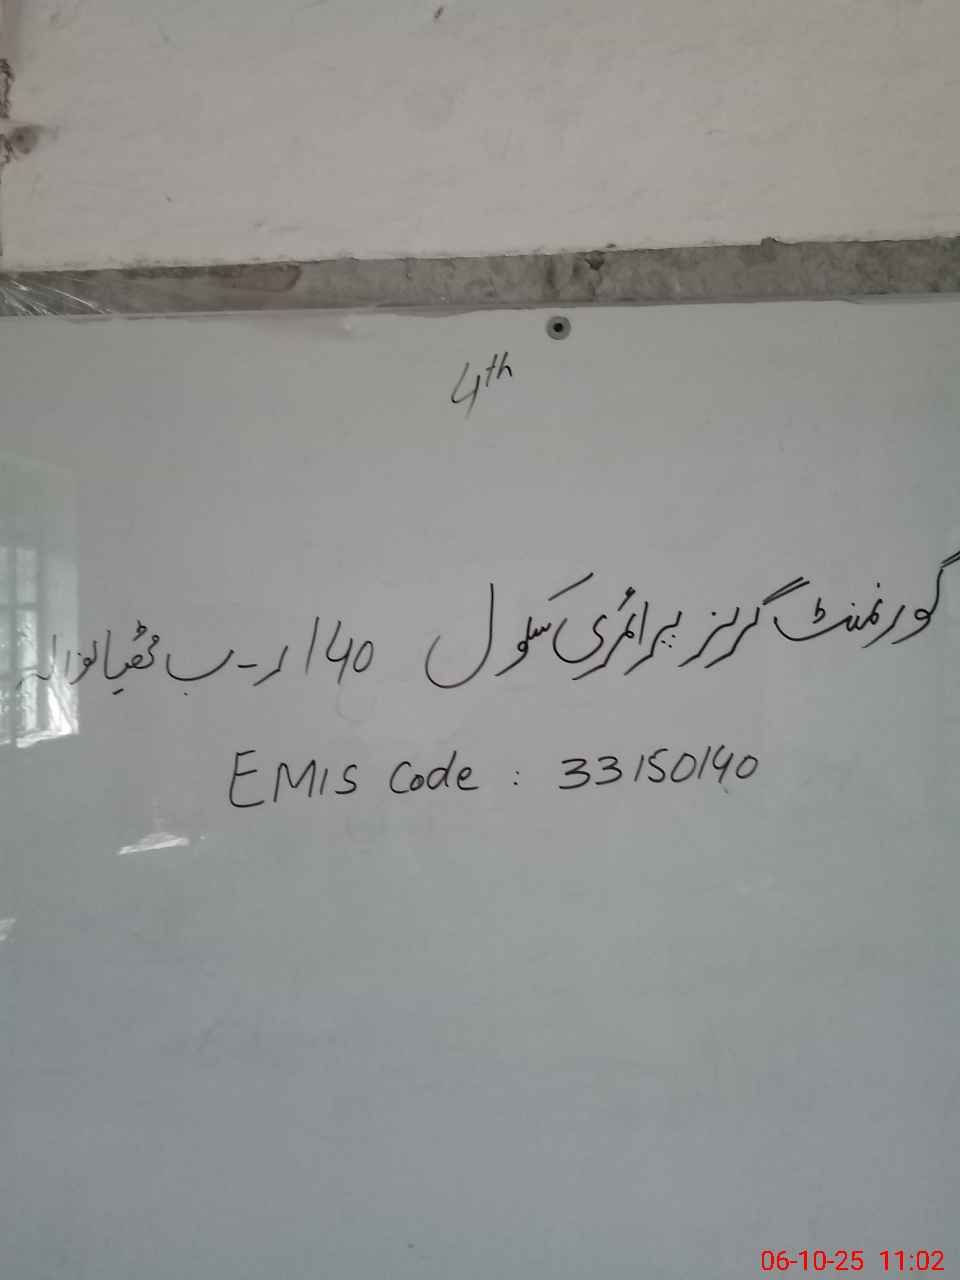 4th
گورنمنٹ گرلز پرائمری سکول 140/ر-ب
EMIS Code : 33150140
06-10-25 11:02